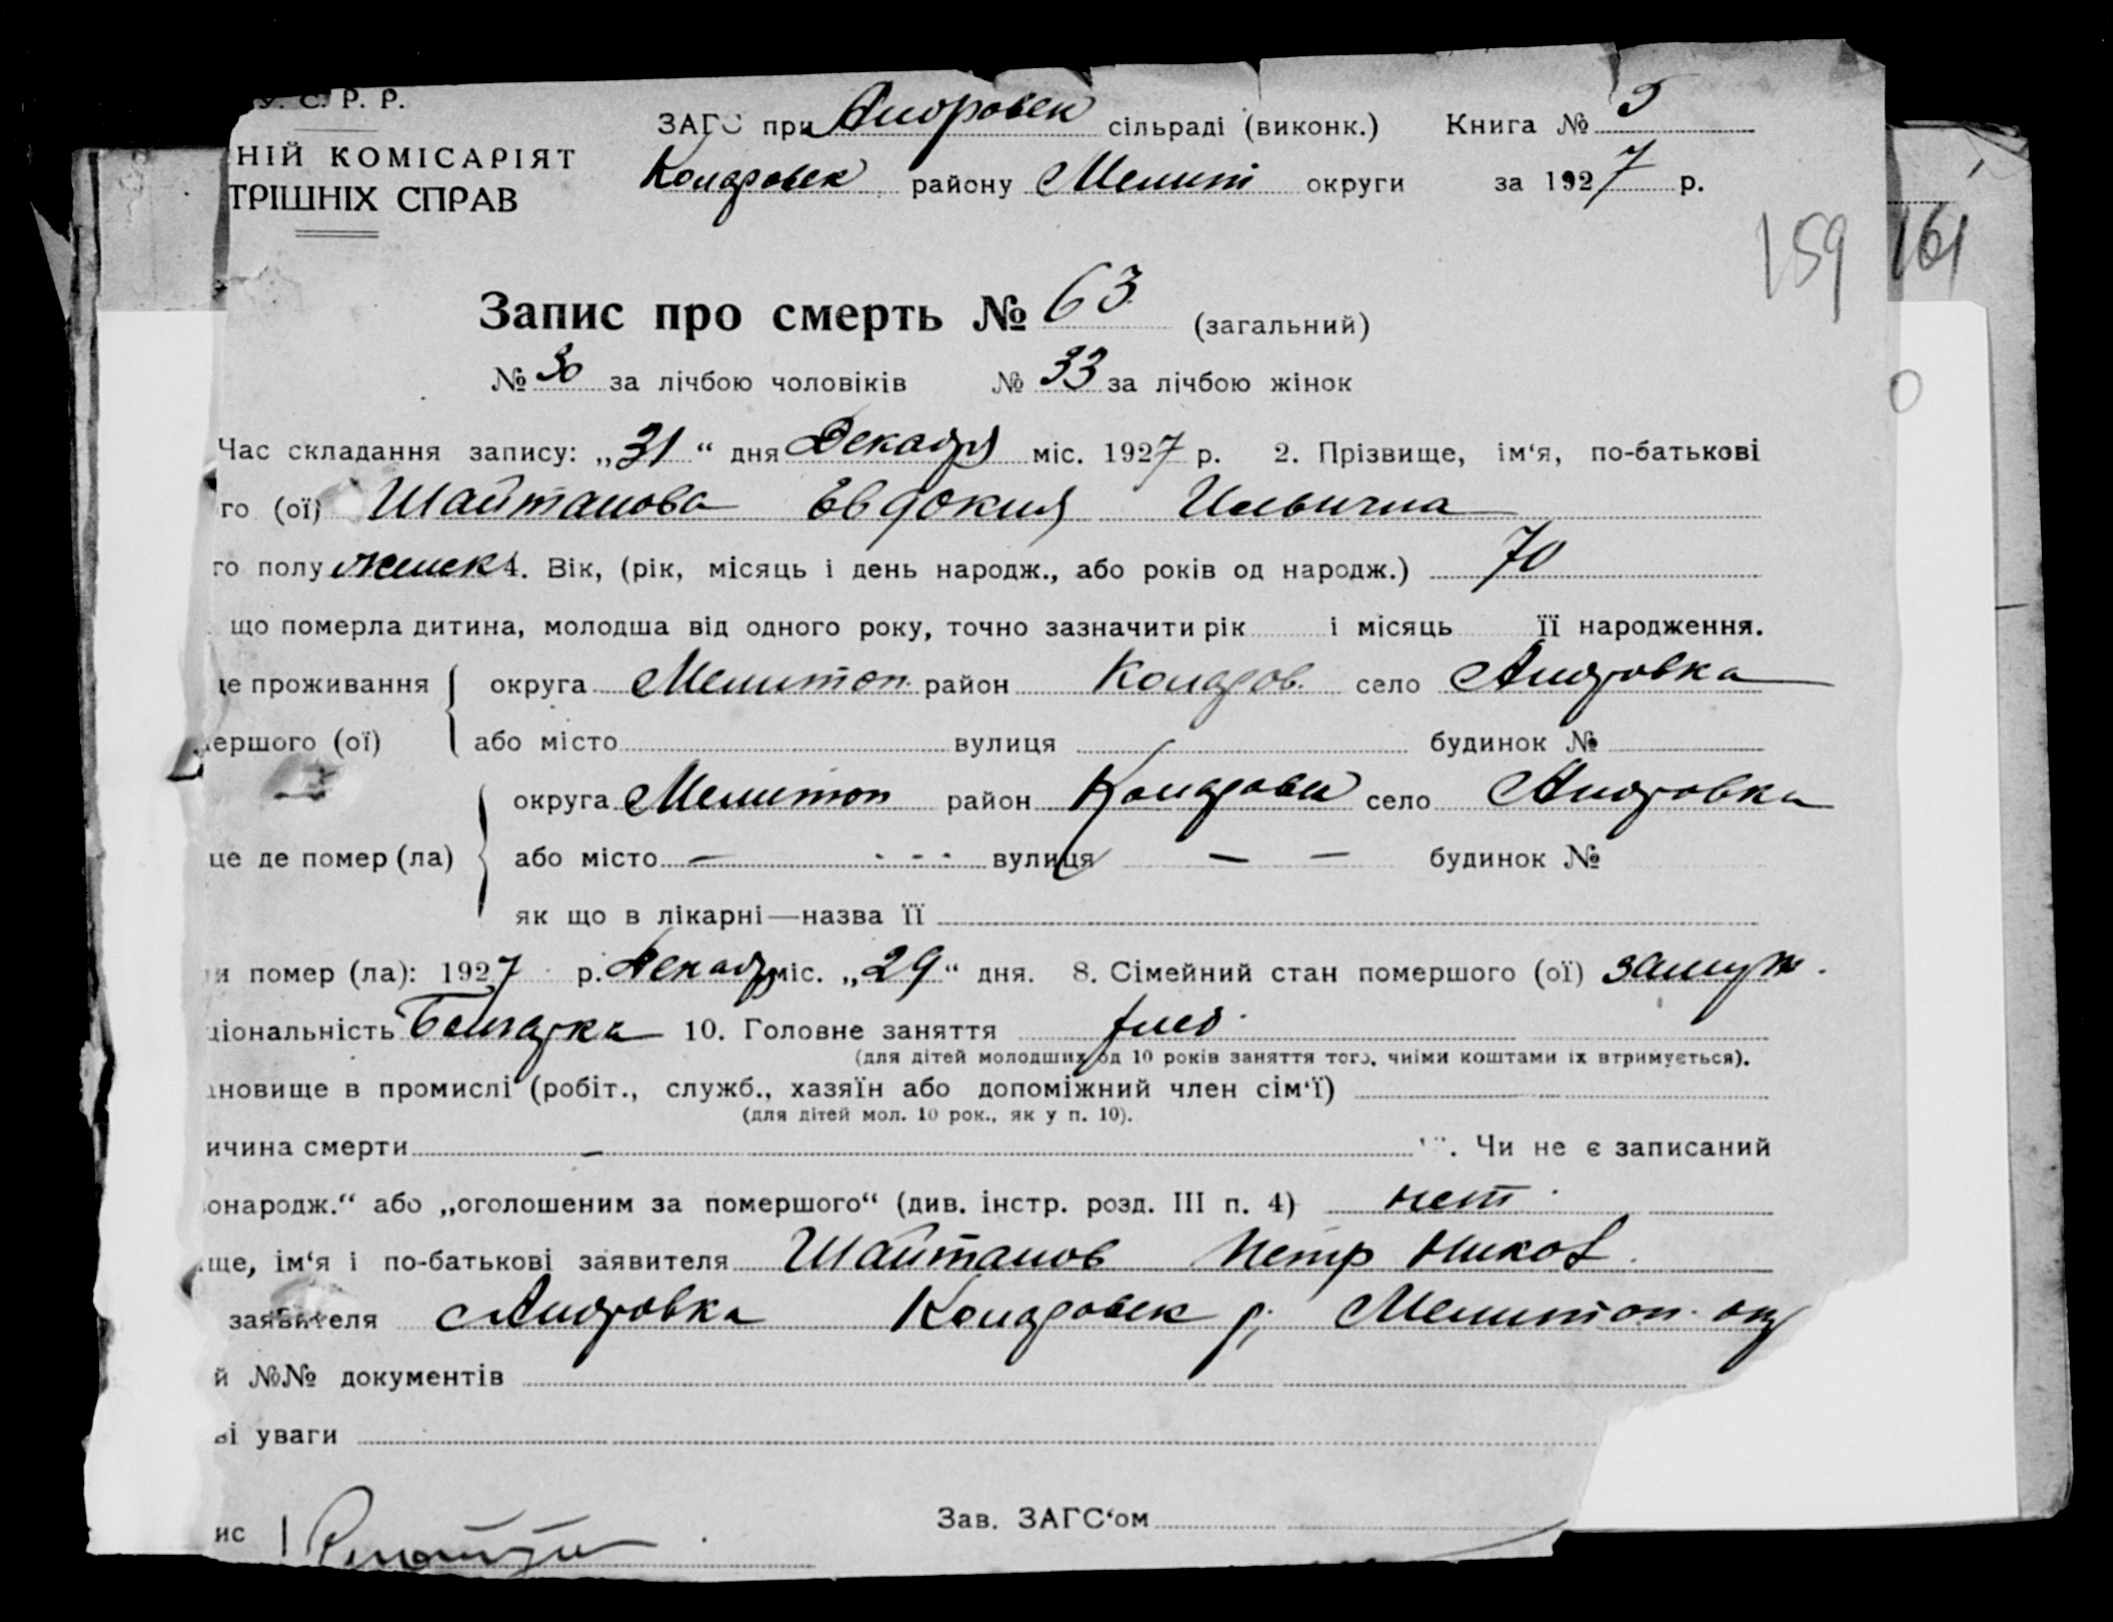 У. С. Р. Р.
ЗАГС при Андровск сільраді (виконк.) Книга № 5
НІЙ КОМІСАРІЯТ
Коларовск району Мелит округи за 1927 р.
ТРІШНІХ СПРАВ
159 161
Запис про смерть № 63 (загальний)
№ 30 за лічбою чоловіків № 33 за лічбою жінок
Час складання запису: „31“ дня Декабря міс. 1927 р. 2. Прізвище, ім‘я, по-батькові
го (ої) Шайтанова Евдокия Ильична
го полу женск 4. Вік, (рік, місяць і день народж., або років од народж.) 70
що померла дитина, молодша від одного року, точно зазначити рік і місяць її народження.
це проживання округа Мелитоп. район Коларов. село Андровка
мершого (ої) або місто вулиця будинок №
округа Мелитоп район Коларовск село Андровка
це де помер (ла) або місто — - - - вулиця — — будинок №
як що в лікарні—назва її
и помер (ла): 1927 р. Декабр міс. „29“ дня. 8. Сімейний стан помершого (ої) замуж.
ціональність Болгарка 10. Головне заняття хлеб.
(для дітей молодших од 10 років заняття того, чиїми коштами їх втримується).
ановище в промислі (робіт., служб., хазяїн або допоміжний член сім‘ї)
(для дітей мол. 10 рок., як у п. 10).
ичина смерти – . Чи не є записаний
онародж.“ або „оголошеним за помершого“ (див. інстр. розд. III п. 4) нет.
ще, ім‘я і по-батькові заявителя Шайтанов Петр Никол.
заявителя Андровка Коларовск р. Мелитоп. окр
й №№ документів
ві уваги
ис Зав. ЗАГС‘ом